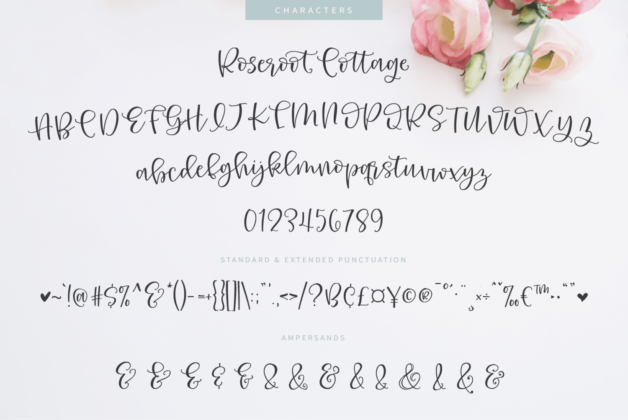 CHARACTERS
Roseroot Cottage
ABCDEFGHIJKLMNOPQRSTUVWXYZ
abcdefghijklmnopqrstuvwxyz
0123456789
STANDARD & EXTENDED PUNCTUATION
♥~`!@#$%^&*()-=+{}[]|\:;"',.<>/?₿¢£¤¥©®¯°´·¨¸×÷ˆ˜‰€™••“”♥
AMPERSANDS
& & & & & & & & & & & & & &